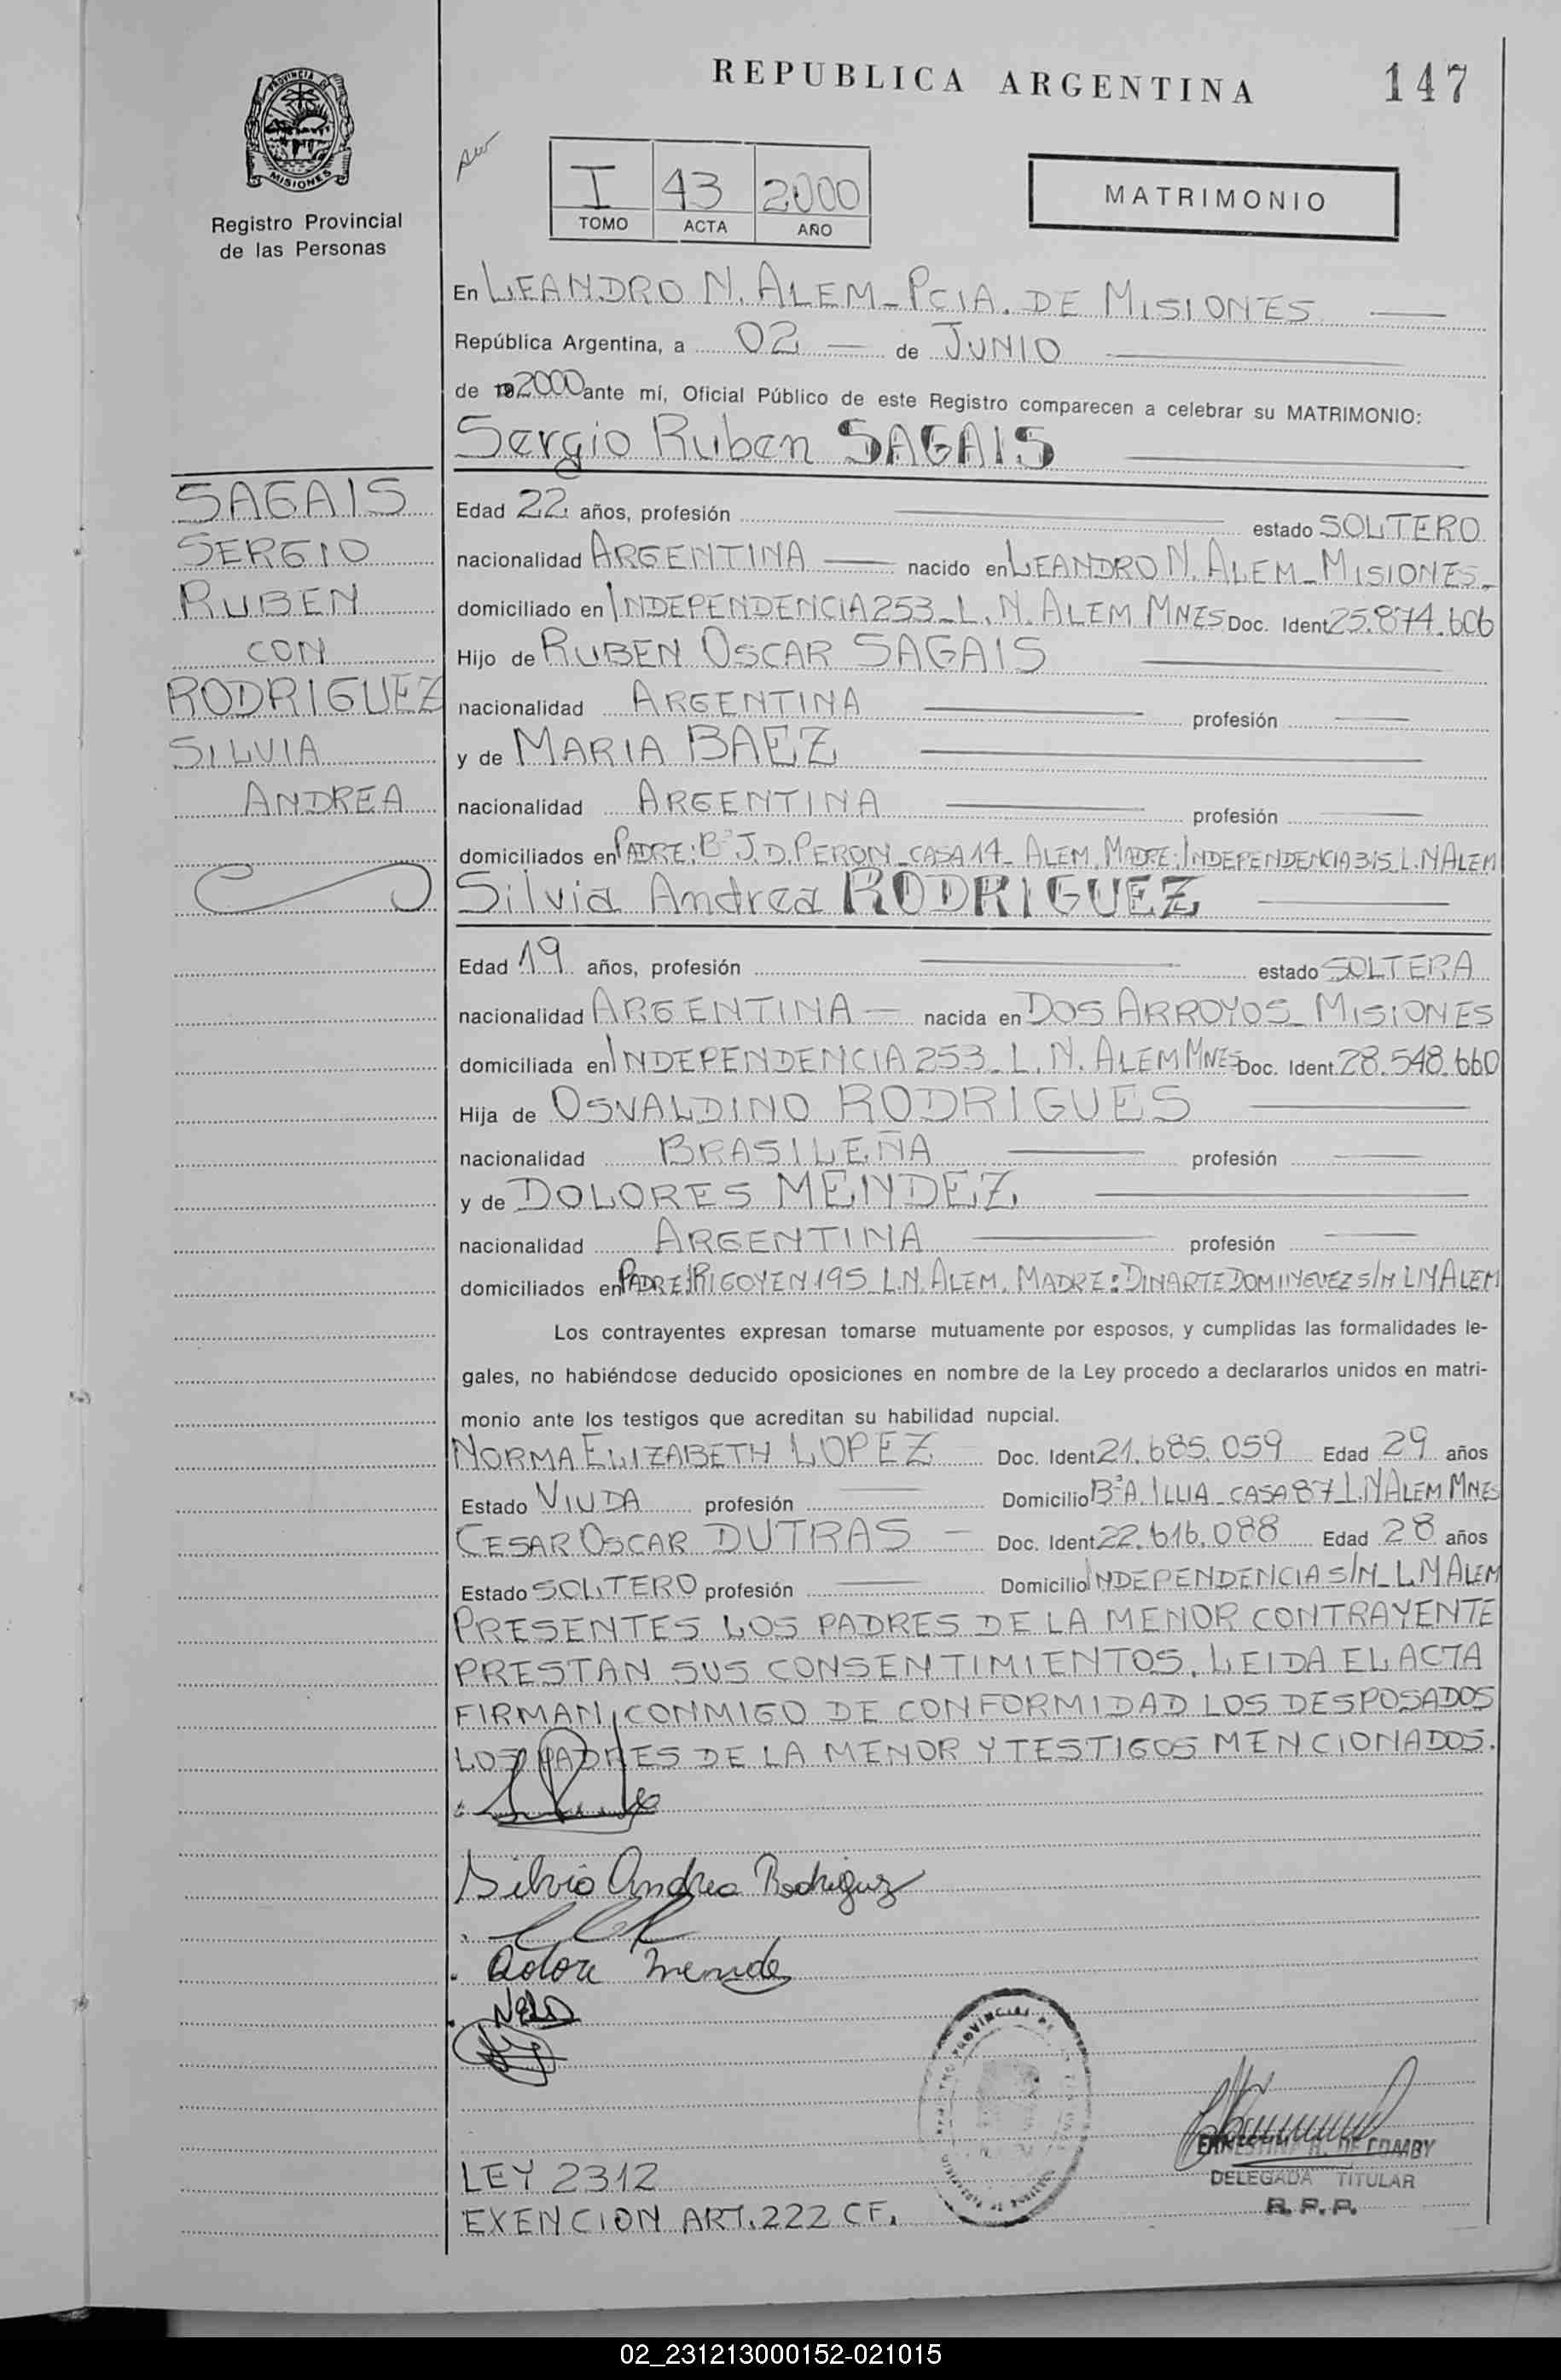 REPUBLICA ARGENTINA 147
PROVINCIA DE
MISIONES
Registro Provincial
de las Personas
I 43 2000
TOMO ACTA AÑO
MATRIMONIO
En LEANDRO N. ALEM - PCIA. DE MISIONES
República Argentina, a 02 de JUNIO
de 2000 ante mí, Oficial Público de este Registro comparecen a celebrar su MATRIMONIO:
Sergio Ruben SAGAIS
SAGAIS
SERGIO
RUBEN
CON
RODRIGUEZ
SILVIA
ANDREA
Edad 22 años, profesión estado SOLTERO
nacionalidad ARGENTINA nacido en LEANDRO N. ALEM - MISIONES
domiciliado en INDEPENDENCIA 253 - L. N. ALEM MNES Doc. Ident. 25.874.606
Hijo de RUBEN OSCAR SAGAIS
nacionalidad ARGENTINA profesión
y de MARIA BAEZ
nacionalidad ARGENTINA profesión
domiciliados en PADRE: B° J.D. PERON - CASA 14 - ALEM. MADRE: INDEPENDENCIA 315 L. N ALEM
Silvia Andrea RODRIGUEZ
Edad 19 años, profesión estado SOLTERA
nacionalidad ARGENTINA nacida en DOS ARROYOS - MISIONES
domiciliada en INDEPENDENCIA 253 - L. N. ALEM MNES Doc. Ident. 28.548.660
Hija de OSVALDINO RODRIGUES
nacionalidad BRASILEÑA profesión
y de DOLORES MENDEZ
nacionalidad ARGENTINA profesión
domiciliados en PADRE: IRIGOYEN 195 L.N. ALEM. MADRE: DINARTE DOMINGUEZ S/N L N ALEM
Los contrayentes expresan tomarse mutuamente por esposos, y cumplidas las formalidades le-
gales, no habiéndose deducido oposiciones en nombre de la Ley procedo a declararlos unidos en matri-
monio ante los testigos que acreditan su habilidad nupcial.
NORMA ELIZABETH LOPEZ Doc. Ident. 21.685.059 Edad 29 años
Estado VIUDA profesión Domicilio B° A. ILLIA - CASA 87 - L. N ALEM MNES
CESAR OSCAR DUTRAS Doc. Ident. 22.616.088 Edad 28 años
Estado SOLTERO profesión Domicilio INDEPENDENCIA S/N - L. N ALEM
PRESENTES LOS PADRES DE LA MENOR CONTRAYENTE
PRESTAN SUS CONSENTIMIENTOS. LEIDA EL ACTA
FIRMAN CONMIGO DE CONFORMIDAD LOS DESPOSADOS
LOS PADRES DE LA MENOR Y TESTIGOS MENCIONADOS.
Silvia Andrea Rodriguez
LEY 2312
EXENCION ART. 222 CF.
ERNESTINA R. DE COMBY
DELEGADA TITULAR
R. P. P.
02_231213000152-021015